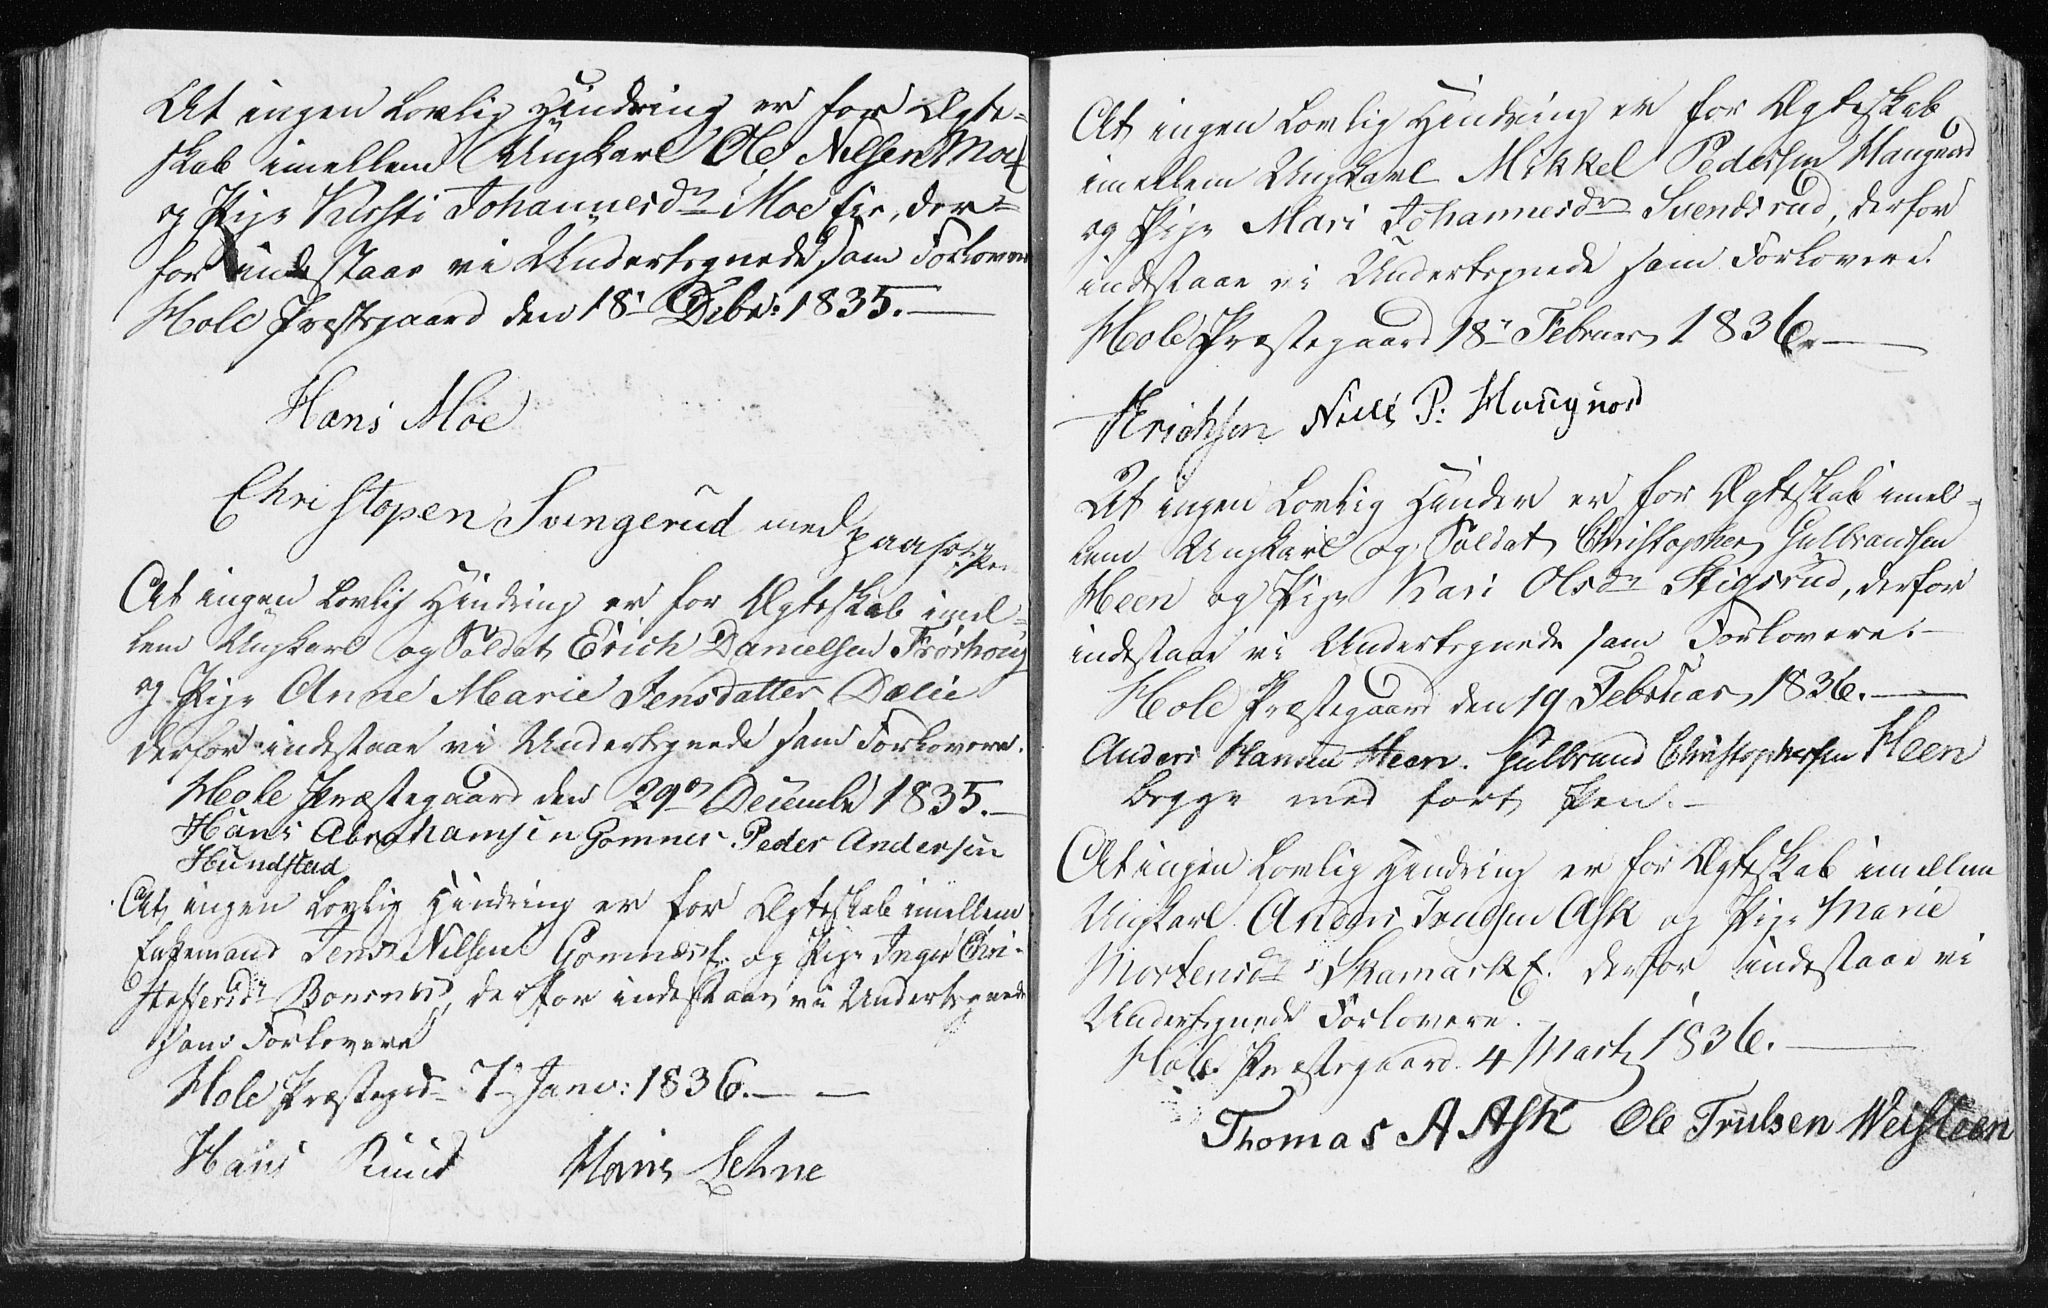 At ingen Lovlig Hindring er for Ægte-
skab imellem Ungkarl Ole Nilsen Moe
og Pige Kirsti Johannesdr Moe Eie, der-
for indestaae vi Undertegnede som Forlovere
Hole Præstegaard den 18 Debr: 1835.
Hans Moe
Christopen Svingerud med paaholden Pen
At ingen Lovlig Hindring er for Ægteskab imel-
lem Ungkarl og Soldat Erich Danielsen Frøshoug
og Pige Anne Marie Jensdatter Dælie
derfor indestaae vi Undertegnede som Forlovere.
Hole Præstegaard den 29de December 1835.
Hans Abrahamsen Gomnes. Peder Andersen
Hundstad
At ingen Lovlig Hindring er for Ægteskab imellem
Enkemand Jens Nilsen Gomnes E. og Pige Inger Chri-
stoffersdr Bonsnes, derfor indestaae vi Undertegnede
som Forlovere
Hole Præstegrd 7 Janv: 1836.
Hans Ruud Hans Lehne
At ingen Lovlig Hindring er for Ægteskab
imellem Ungkarl Mikkel Pedersen Haugnord
og Pige Mari Johannesdr Svendsrud, derfor
indestaae vi Undertegnede som Forlovere.
Hole Præstegaard 18 Februar 1836.
Erichsen Niels P. Haugnord
At ingen Lovlig Hinder er for Ægteskab imel-
lem Ungkarl og Soldat Christopher Gulbrandsen
Heen og Pige Kari Olsdr Stigsrud, derfor
indestaae vi Undertegnede som Forlovere.
Hole Præstegaard den 19 Februar 1836.
Anders Hansen Heen. Gulbrand Christophersen Heen
begge med ført Pen.
At ingen Lovlig Hindring er for Ægteskab imellem
Ungkarl Anders Trulsen Ask og Pige Marie
Mortensdr Skamark E. derfor indestaae vi
Undertegnede Forlovere.
Hole Præstegaard 4 Marts 1836.
Thomas A Ask Ole Trulsen Weisteen